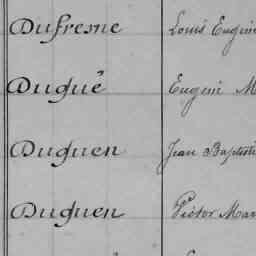 Dufresne Louis Eugèn
Dugué Eugène M
Duguen Jean Baptist
Duguen Victor Mar